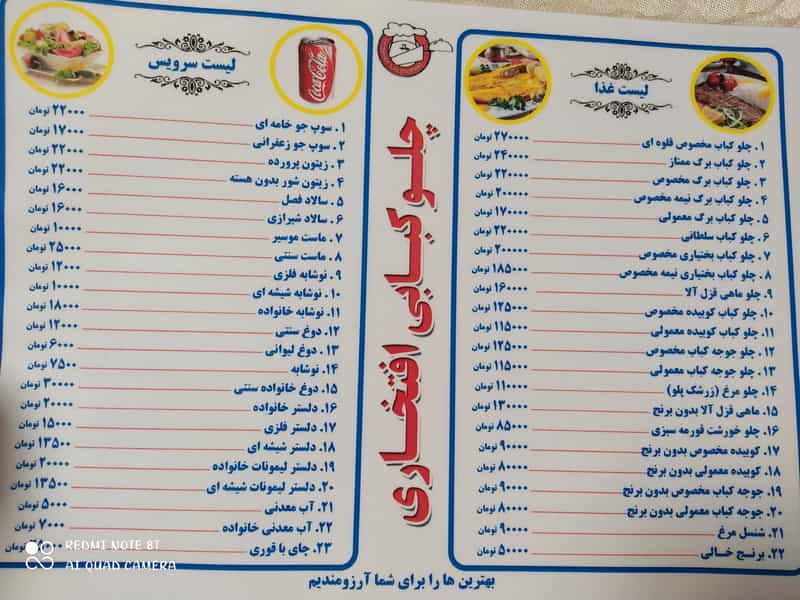 لیست غذا
۱. چلو کباب مخصوص قلوه ای ۲۷۰۰۰۰ تومان
۲. چلو کباب برگ ممتاز ۲۴۰۰۰۰ تومان
۳. چلو کباب برگ مخصوص ۲۲۰۰۰۰ تومان
۴. چلو کباب برگ نیمه مخصوص ۲۰۰۰۰۰ تومان
۵. چلو کباب برگ معمولی ۱۷۰۰۰۰ تومان
۶. چلو کباب سلطانی ۲۲۰۰۰۰ تومان
۷. چلو کباب بختیاری مخصوص ۲۰۰۰۰۰ تومان
۸. چلو کباب بختیاری نیمه مخصوص ۱۸۵۰۰۰ تومان
۹. چلو ماهی قزل آلا ۱۶۰۰۰۰ تومان
۱۰. چلو کباب کوبیده مخصوص ۱۲۵۰۰۰ تومان
۱۱. چلو کباب کوبیده معمولی ۱۱۵۰۰۰ تومان
۱۲. چلو جوجه کباب مخصوص ۱۲۵۰۰۰ تومان
۱۳. چلو جوجه کباب معمولی ۱۱۵۰۰۰ تومان
۱۴. چلو مرغ (زرشک پلو) ۱۱۰۰۰۰ تومان
۱۵. ماهی قزل آلا بدون برنج ۱۳۰۰۰۰ تومان
۱۶. چلو خورشت قورمه سبزی ۸۵۰۰۰ تومان
۱۷. کوبیده مخصوص بدون برنج ۹۰۰۰۰ تومان
۱۸. کوبیده معمولی بدون برنج ۸۰۰۰۰ تومان
۱۹. جوجه کباب مخصوص بدون برنج ۹۰۰۰۰ تومان
۲۰. جوجه کباب معمولی بدون برنج ۸۰۰۰۰ تومان
۲۱. شنسل مرغ ۹۰۰۰۰ تومان
۲۲. برنج خالی ۵۰۰۰۰ تومان
چلو کبابی افتخاری
لیست سرویس
Coca-Cola
۱. سوپ جو خامه ای ۲۲۰۰۰ تومان
۲. سوپ جو زعفرانی ۱۷۰۰۰ تومان
۳. زیتون پرورده ۲۲۰۰۰ تومان
۴. زیتون شور بدون هسته ۲۲۰۰۰ تومان
۵. سالاد فصل ۱۶۰۰۰ تومان
۶. سالاد شیرازی ۱۶۰۰۰ تومان
۷. ماست موسیر ۱۰۰۰۰ تومان
۸. ماست سنتی ۲۵۰۰۰ تومان
۹. نوشابه فلزی ۱۲۰۰۰ تومان
۱۰. نوشابه شیشه ای ۱۰۰۰۰ تومان
۱۱. نوشابه خانواده ۱۸۰۰۰ تومان
۱۲. دوغ سنتی ۱۲۰۰۰ تومان
۱۳. دوغ لیوانی ۶۰۰۰ تومان
۱۴. نوشابه ۷۵۰۰ تومان
۱۵. دوغ خانواده سنتی ۳۰۰۰۰ تومان
۱۶. دلستر خانواده ۲۰۰۰۰ تومان
۱۷. دلستر فلزی ۱۵۰۰۰ تومان
۱۸. دلستر شیشه ای ۱۳۵۰۰ تومان
۱۹. دلستر لیمونات خانواده ۲۰۰۰۰ تومان
۲۰. دلستر لیمونات شیشه ای ۱۳۵۰۰ تومان
۲۱. آب معدنی ۵۰۰۰ تومان
۲۲. آب معدنی خانواده ۷۰۰۰ تومان
۲۳. چای با قوری تومان
بهترین ها را برای شما آرزومندیم
REDMI NOTE 8T
AI QUAD CAMERA